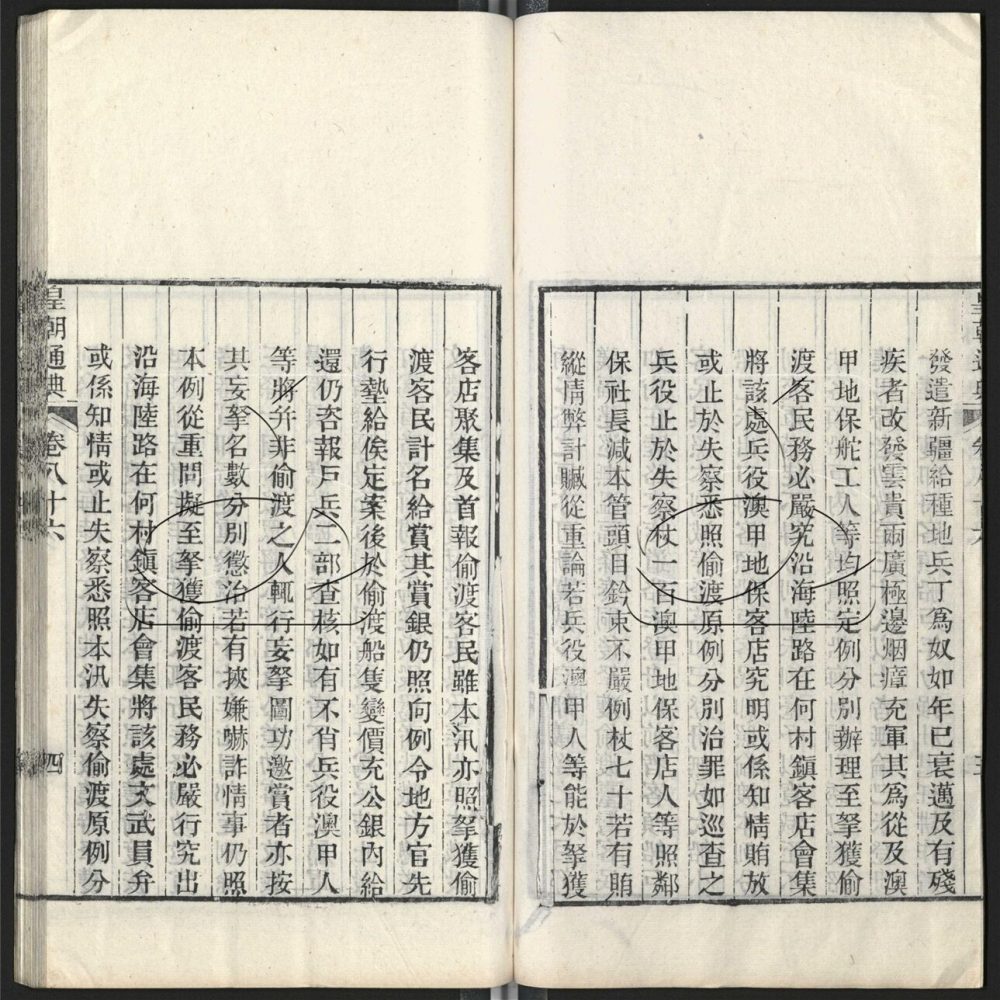 發遣新疆給種地兵丁爲奴如年已衰邁及有殘
疾者改發雲貴兩廣極邊烟瘴充軍其爲從及澳
甲地保舵工人等均照定例分別辦理至拏獲偷
渡客民務必嚴究沿海陸路在何村鎭客店會集
將該處兵役澳甲地保客店究明或係知情賄放
或止於失察悉照偷渡原例分別治罪如巡查之
兵役止於失察杖一百澳甲地保客店人等照鄰
保社長減本管頭目鈐束不嚴例杖七十若有賄
縱情弊計贓從重論若兵役澳甲人等能於拏獲
客店聚集及首報偷渡客民雖本汛亦照拏獲偷
渡客民計名給賞其賞銀仍照向例令地方官先
行墊給俟定案後於偷渡船隻變價充公銀內給
還仍咨報戶兵二部查核如有不肖兵役澳甲人
等將幷非偷渡之人輒行妄拏圖功邀賞者亦按
其妄拏名數分別懲治若有挾嫌嚇詐情事仍照
本例從重問擬至拏獲偷渡客民務必嚴行究出
沿海陸路在何村鎭客店會集將該處文武員弁
或係知情或止失察悉照本汛失察偷渡原例分
皇朝通典
卷八十六
四